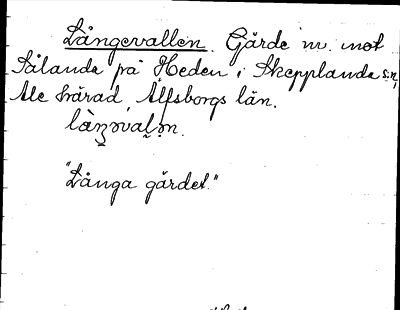 Långevallen. Gärde nv. mot
Sålanda på Heden i Skepplanda sn,
Ale härad, Älfsborgs län.
"Långa gärdet."